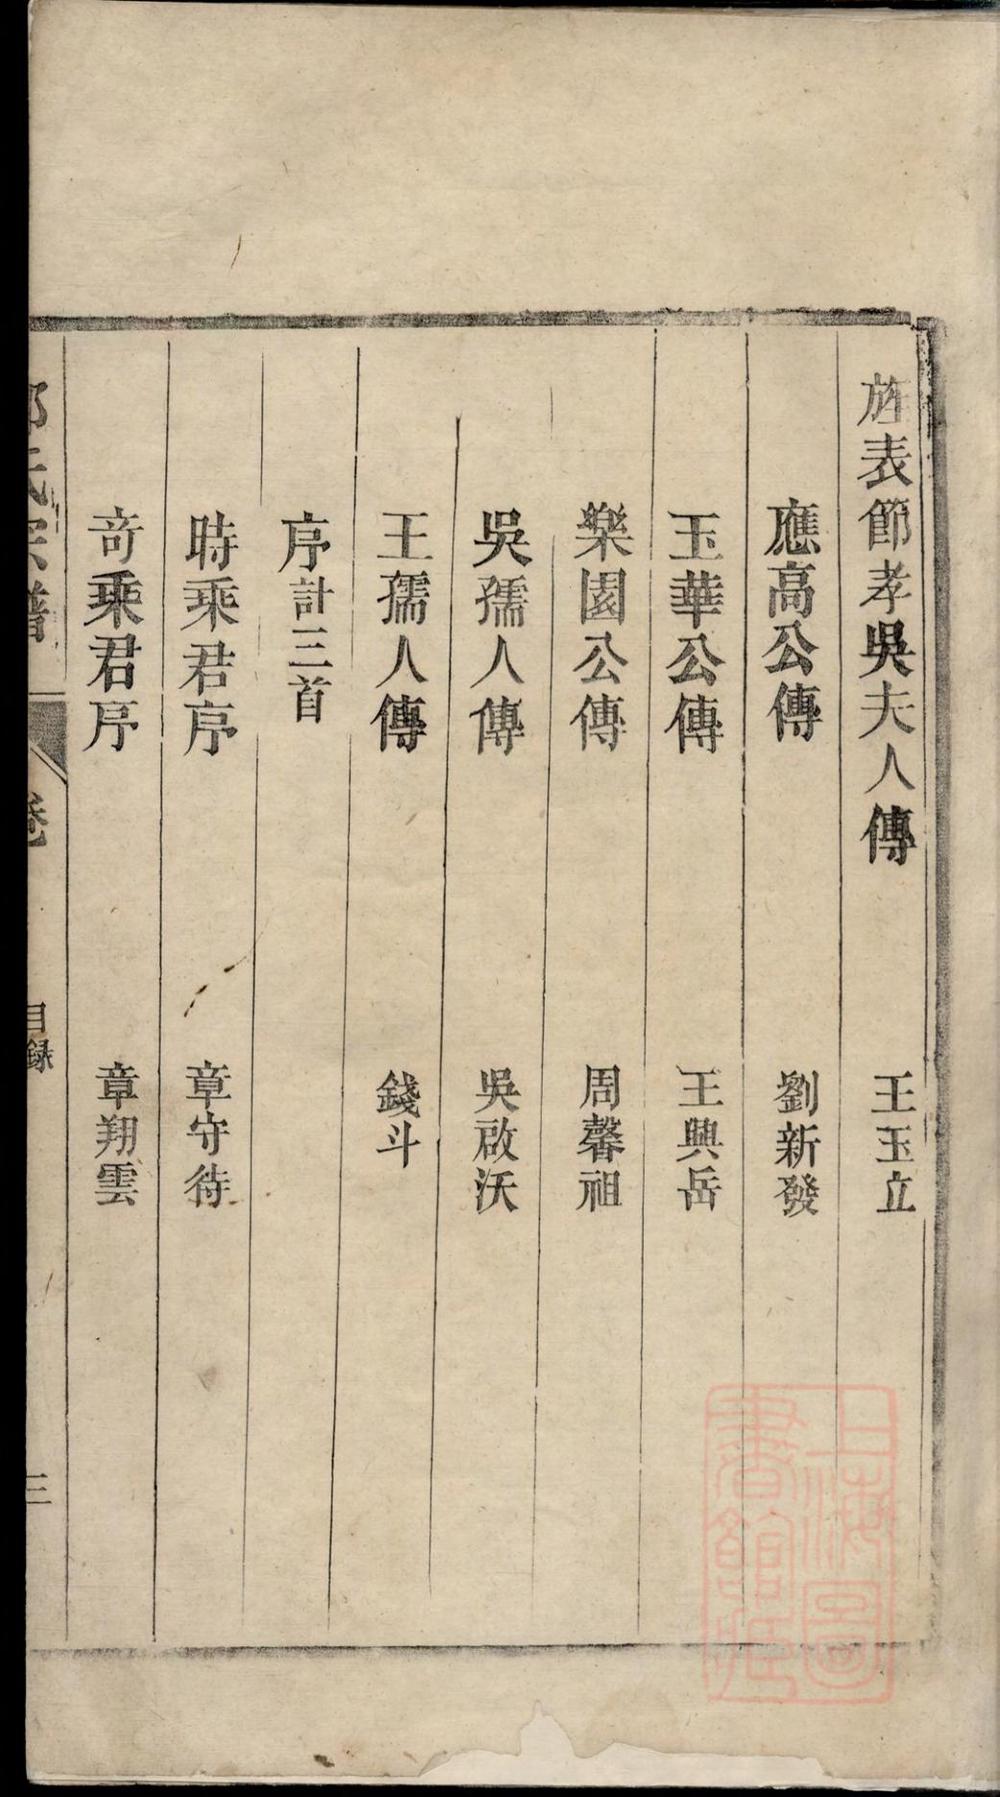 旌表節孝吳夫人傳 王玉立
應高公傳 劉新發
玉華公傳 王興岳
樂園公傳 周馨祖
吳孺人傳 吳啟沃
王孺人傳 錢斗
序計三首
時乘君序 章守待
奇乘君序 章翔雲
氏宗譜 卷 目録 三
上海圖書館藏